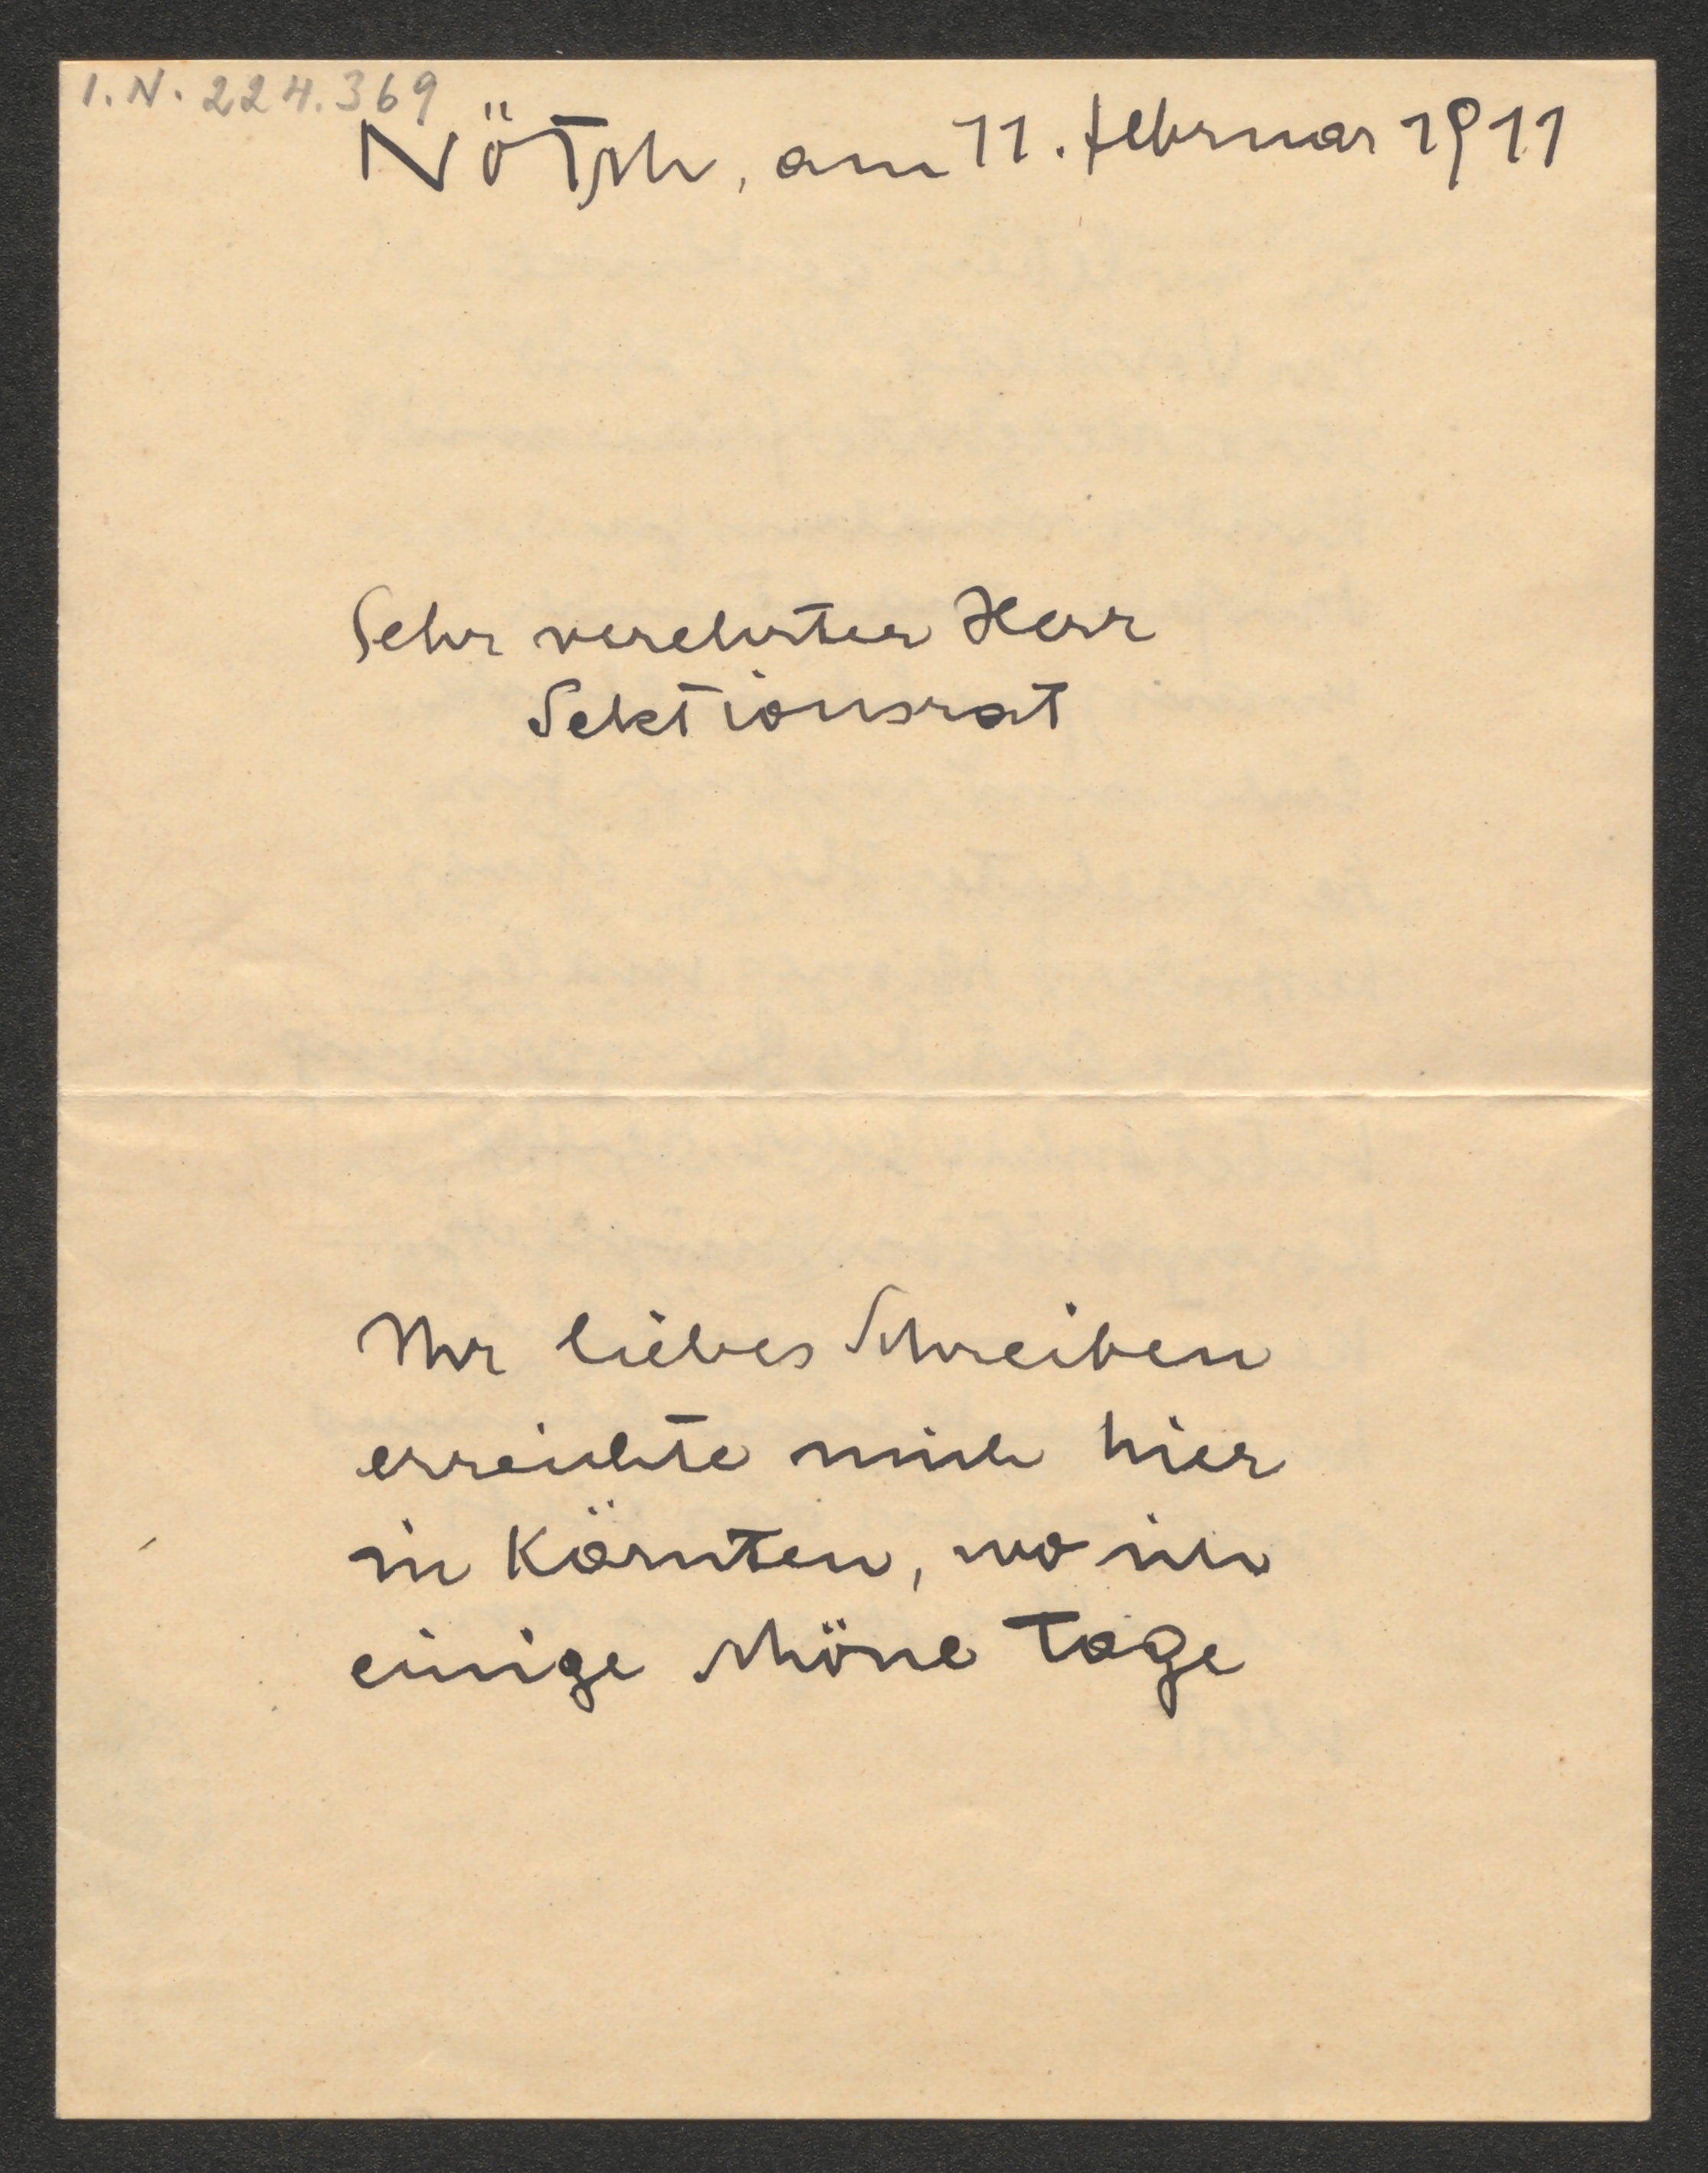 I.N. 224.369
Nötsch, am 11. Februar 1911
Sehr verehrter Herr
Sektionsrat
Ihr liebes Schreiben
erreichte mich hier
in Kärnten, wo ich
einige schöne Tage